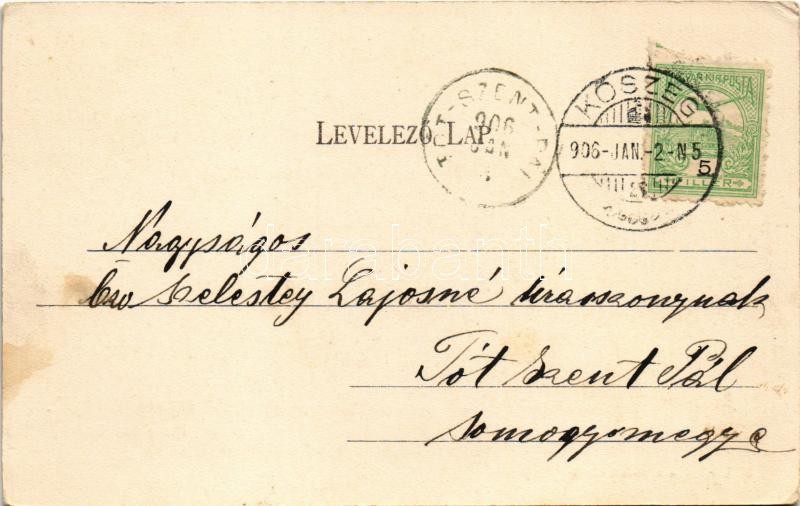 LEVELEZŐ LAP
TÓT-SZENT-PÁL
906
JAN
KŐSZEG
906-JAN.-2-N5
MAGYAR KIR. POSTA
5
FILLÉR
Nagyságos
Kelestey Lajosné úraszonynak
Tót Szent Pál
Somogymegye